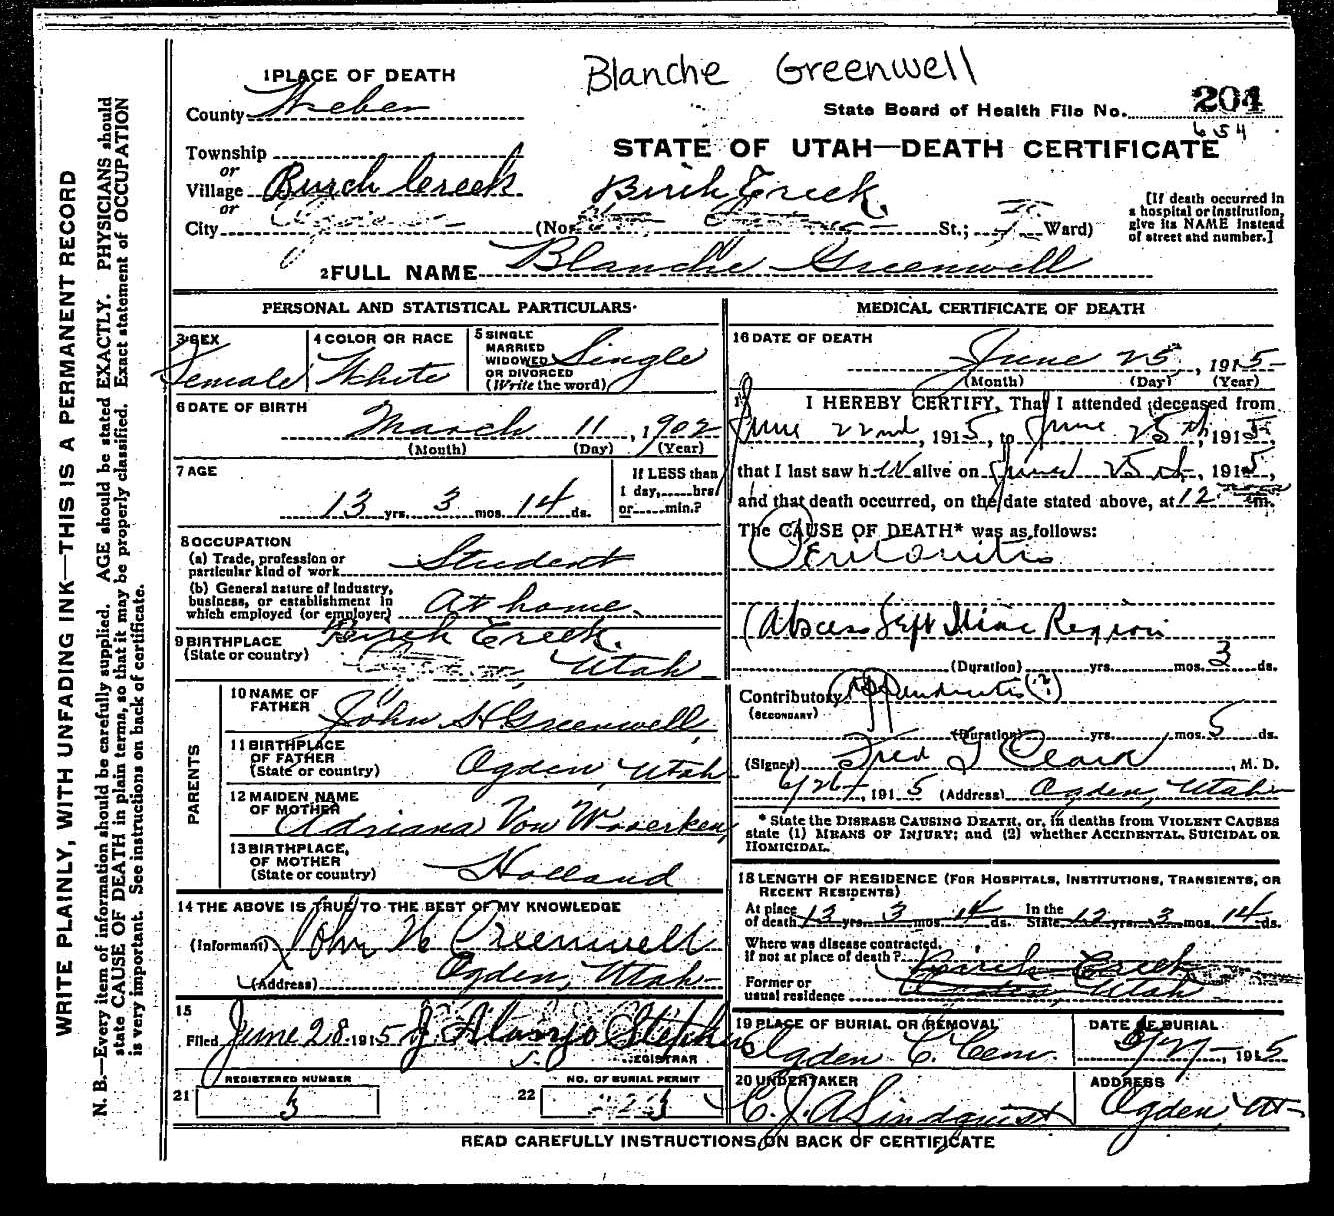 Blanche Greenwell
1 PLACE OF DEATH
County Weber
State Board of Health File No. 204
654
Township
or
Village Burch Creek
STATE OF UTAH—DEATH CERTIFICATE
Birch Creek
or
City (No. St.; Ward)
[If death occurred in a hospital or institution, give its NAME instead of street and number.]
2 FULL NAME Blanche Greenwell
PERSONAL AND STATISTICAL PARTICULARS
3 SEX Female
4 COLOR OR RACE White
5 SINGLE MARRIED WIDOWED OR DIVORCED (Write the word) Single
6 DATE OF BIRTH March 11, 1902
(Month) (Day) (Year)
7 AGE
13 yrs. 3 mos. 14 ds.
If LESS than 1 day, hrs. or min.?
8 OCCUPATION
(a) Trade, profession or particular kind of work Student
(b) General nature of industry, business, or establishment in which employed (or employer) At home
9 BIRTHPLACE (State or country) Birch Creek, Utah
PARENTS
10 NAME OF FATHER John H Greenwell
11 BIRTHPLACE OF FATHER (State or country) Ogden, Utah
12 MAIDEN NAME OF MOTHER Adriana Von
13 BIRTHPLACE, OF MOTHER (State or country) Holland
14 THE ABOVE IS TRUE TO THE BEST OF MY KNOWLEDGE
(Informant) John H Greenwell
(Address) Ogden, Utah
15
Filed June 28 1915 J. Alonzo Stephens
REGISTRAR
REGISTERED NUMBER
21 3
NO. OF BURIAL PERMIT
22 3
MEDICAL CERTIFICATE OF DEATH
16 DATE OF DEATH June 25, 1915
(Month) (Day) (Year)
I HEREBY CERTIFY, That I attended deceased from
June 22nd, 1915, to June 25th, 1915,
that I last saw her alive on June 25th, 1915,
and that death occurred, on the date stated above, at 12 m.
The CAUSE OF DEATH* was as follows:
Peritonitis
(Abscess Left Iliac Region
(Duration) yrs. mos. 3 ds.
Contributory Appendicitis (?)
(SECONDARY)
(Duration) yrs. mos. 5 ds.
(Signed) Fred J Clark, M. D.
6/26, 1915 (Address) Ogden, Utah
* State the DISEASE CAUSING DEATH, or, in deaths from VIOLENT CAUSES
state (1) MEANS OF INJURY; and (2) whether ACCIDENTAL, SUICIDAL OR
HOMICIDAL.
18 LENGTH OF RESIDENCE (FOR HOSPITALS, INSTITUTIONS, TRANSIENTS, OR
RECENT RESIDENTS)
At place of death 13 yrs. 3 mos. 14 ds. In the State 13 yrs. 3 mos. 14 ds.
Where was disease contracted,
if not at place of death? Birch Creek
Former or usual residence Utah
19 PLACE OF BURIAL OR REMOVAL Ogden C. Cem.
DATE OF BURIAL 6/27, 1915
20 UNDERTAKER C. J. A Lindquist
ADDRESS Ogden, Ut
READ CAREFULLY INSTRUCTIONS ON BACK OF CERTIFICATE
WRITE PLAINLY, WITH UNFADING INK—THIS IS A PERMANENT RECORD
N. B.—Every item of information should be carefully supplied. AGE should be stated EXACTLY. PHYSICIANS should
state CAUSE OF DEATH in plain terms, so that it may be properly classified. Exact statement of OCCUPATION
is very important. See instructions on back of certificate.